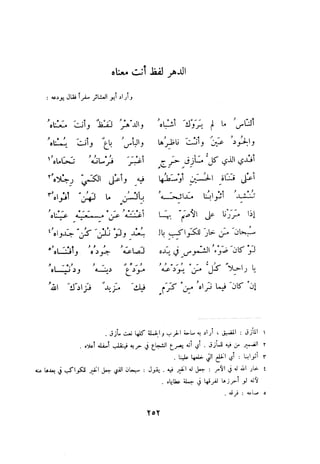 الدهر لفظ أنت معناه
وأراد أبو العشائر سفراً فقال يودعه :
ألنّاسُ ما لم يَرَوْكَ أشْباهُ والدّهْرُ لَفْظٌ وأنتَ مَعْناهُ
والجُودُ عَينٌ وأنْتَ ناظِرُها والبأسُ باعٌ وأنتَ يُمْناهُ
أفدي الذي كلُّ مأزِقٍ حَرِجٍ أغبرَ فُرْسانُهُ تَحاماهُ١
أعلى قناةِ الحُسَينِ أوْسَطُها فيهِ وأعلى الكَميّ رِجْلاهُ٢
تُنْشِدُ أثوابُنا مَدائحَهُ بألسُنٍ ما لَهُنّ أفواهُ٣
إذا مَرَرْنا على الأصَمّ بها أغْنَتْهُ عَنْ مِسْمَعَيْهِ عَيْناهُ
سبحانَ مَن خارَ للكواكبِ بال بُعْدِ ولَوْ نُلْنَ كُنّ جدواهُ٤
لَوْ كانَ ضَوْءُ الشّموسِ في يَدِهِ لَصاعَهُ جُودُهُ وأفْناهُ٥
يا راحِلاً كلُّ مَنْ يُوَدّعُهُ مُوَدِّعٌ دِينَهُ ودُنْياهُ
إنْ كانَ فيما نَراهُ مِن كَرَمٍ فيكَ مَزيدٌ فَزادَكَ اللهُ
١ المأزق : المضيق ، أراد به ساحة الحرب والجملة كلها نعت مأزق .
٢ الضمير من فيه للمأزق . أي أنه يصرع الشجاع في حربه فينقلب أسفله أعلاه .
٣ أثوابنا : أي الخلع التي خلعها علينا .
٤ خار الله له في الأمر : جعل له الخير فيه . يقول : سبحان الذي جعل الخير للكواكب في بعدها عنه
لأنه لو أحرزها لفرقها في جملة عطاياه .
٥ صاعه : فرقه .
٢٥٢